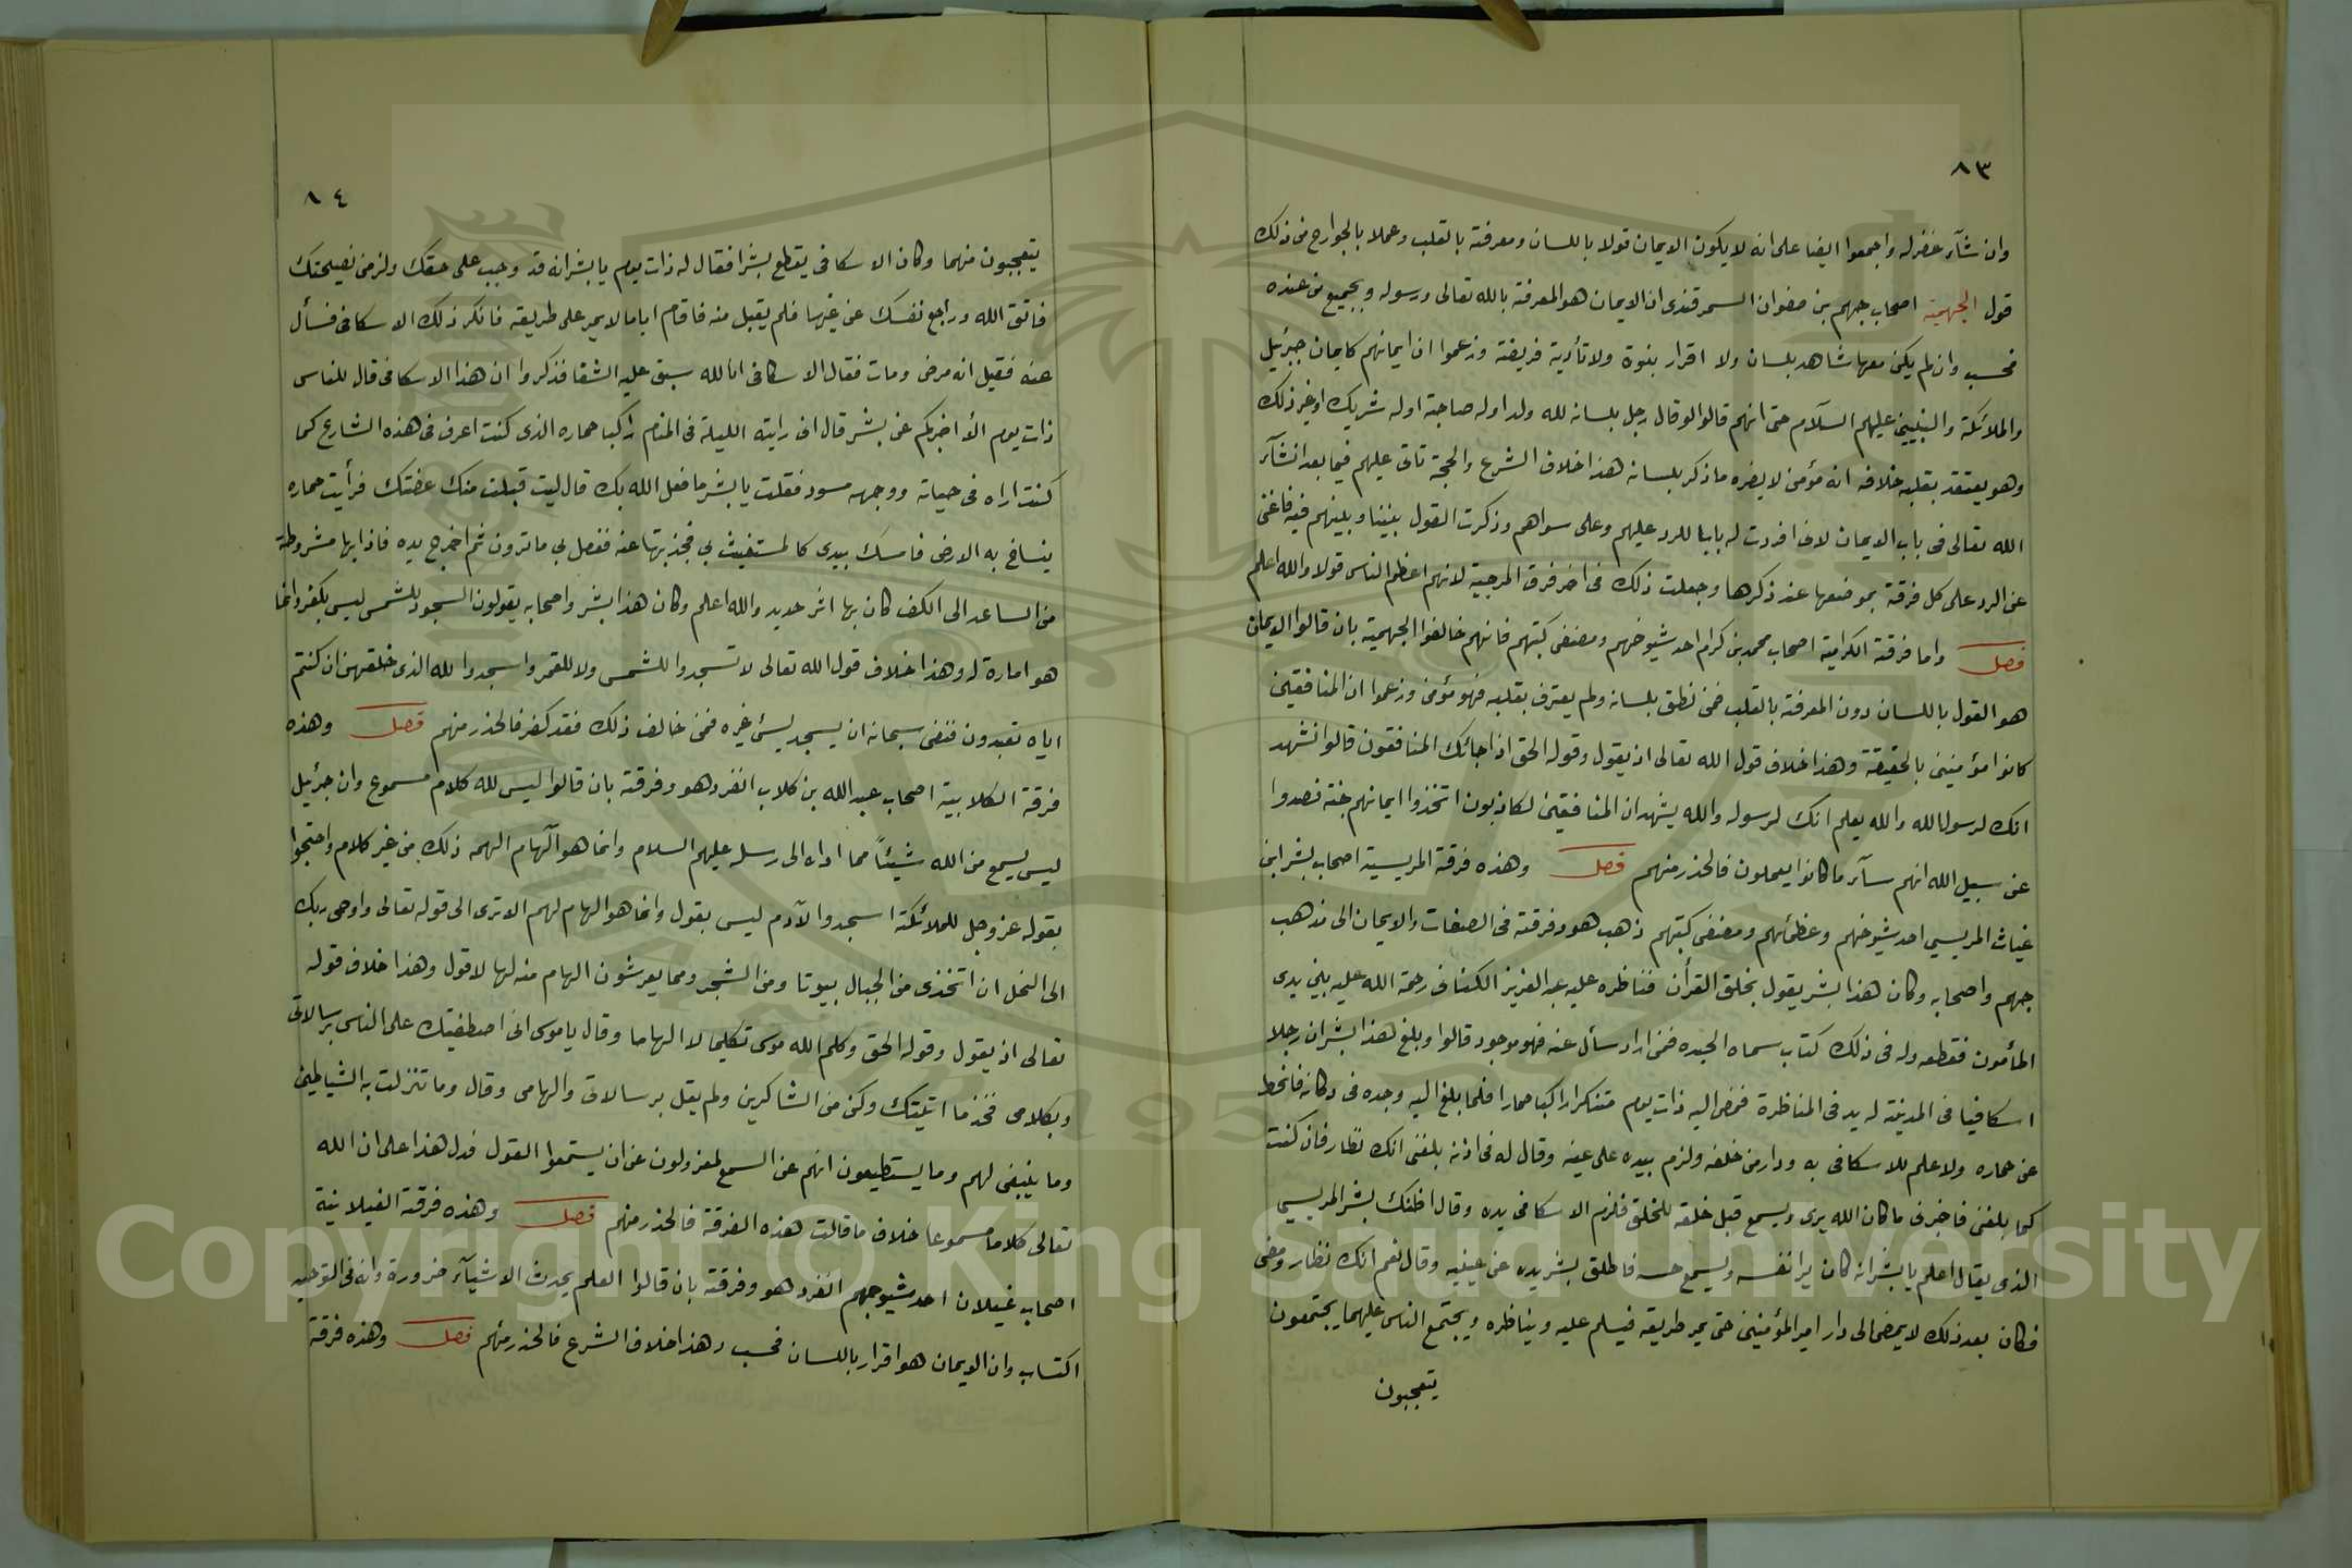 ٨٣
وان شآء غفر له واجمعوا ايضا على انه لا يكون الايمان قولا باللسان ومعرفة بالقلب وعملا بالجوارح من ذلك
قول الجهمية اصحاب جهم بن صفوان السمرقندى ان الايمان هو المعرفة بالله تعالى ورسوله وبجميع من عنده
فحسب وان لم يكن معها شاهد بلسان ولا اقرار بنبوة ولا تأدية فريضة وزعموا ان ايمانهم كايمان جبرئيل
والملائكة والنبيين عليهم السلام حتى انهم قالوا لو قال رجل بلسانه لله ولد او له صاحبة او له شريك او غير ذلك
وهو يعتقد بقلبه خلافه انه مؤمن لا يضره ما ذكر بلسانه هذا خلاف الشرع والحجة تاتى عليهم فيما بعد انشآء
الله تعالى فى باب الايمان لانى افردت له بابا للرد عليهم وعلى سواهم وذكرت القول بيننا وبينهم فيه فاغنى
عن الرد على كل فرقة بموضعها عند ذكرها وجعلت ذلك فى اخر فرق المرجية لانهم اعظم الناس قولا والله اعلم
فصل واما فرقة الكرامية اصحاب محمد بن كرام احد شيوخهم ومصنفى كتبهم فانهم خالفوا الجهمية بان قالوا الايمان
هو القول باللسان دون المعرفة بالقلب فمن نطق بلسانه ولم يعترف بقلبه فهو مؤمن وزعموا ان المنافقين
كانوا مؤمنين بالحقيقة وهذا خلاف قول الله تعالى اذ يقول وقوله الحق اذا جائك المنافقون قالوا نشهد
انك لرسول الله والله يعلم انك لرسوله والله يشهد ان المنافقين لكاذبون اتخذوا ايمانهم جنة فصدوا
عن سبيل الله انهم سآء ما كانوا يعملون فالحذر منهم فصل وهذه فرقة المريسية اصحاب بشر ابن
غياث المريسي احد شيوخهم وعظمائهم ومصنفى كتبهم ذهب هو وفرقته فى الصفات والايمان الى مذهب
جهم واصحابه وكان هذا بشر يقول بخلق القرأن فناظره عليه عبد العزيز الكنانى رحمة الله عليه بين يدى
المأمون فقطعه وله فى ذلك كتاب سماه الحيده فمن اراد سأل عنه فهو موجود قالوا وبلغ هذا بشر ان رجلا
اسكافيا فى المدينة له يد فى المناظرة فمضى اليه ذات يوم متنكرا راكبا حمارا فلما بلغ اليه وجده فى دكانه فانحط
عن حماره ولا علم للاسكافى به ودار من خلفه ولزم بيده على عينه وقال له فى اذنه بلغنى انك نظار فان كنت
كما بلغنى فاخبرنى ما كان الله يرى ويسمع قبل خلقه للخلق فلزم الاسكافى يده وقال اظنك بشر المريسي
الذى يقال اعلم يا بشر انه كان يرا نفسه ويسمع حسه فاطلق بشر يده عن عينيه وقال نعم انك نظار ومضى
فكان بعد ذلك لا يمضى الى دار امير المؤمنين حتى يمر طريقه فيسلم عليه ويناظره ويجتمع الناس عليهما يجتمعون
يتعجبون
٨٤
يتعجبون منهما وكان الاسكافى يقطع بشرا فقال له ذات يوم يا بشر انه قد وجب على حقك ولزمنى نصيحتك
فاتق الله وراجع نفسك عن غيها فلم يقبل منه فاقام اياما لا يمر على طريقه فانكر ذلك الاسكافى فسأل
عنه فقيل انه مرض ومات فقال الاسكافى انا لله سبق عليه الشقا فذكروا ان هذا الاسكافى قال للناس
ذات يوم الأ اخبركم عن بشر قال انى رايته الليلة فى المنام راكبا حماره الذى كنت اعرف فى هذه الشارع كما
كنت اراه فى حياته ووجهه مسود فقلت يا بشر ما فعل الله بك قال ليت قبلت منك فرأيت حماره
ينساخ به الارض فامسك بيدى كالمستغيث بي فجذبتها عنه ففعل بي ما ترون ثم اخرج يده فاذا بها مشروطة
من الساعد الى الكف كان بها اثر حديد والله اعلم وكان هذا بشر واصحابه يقولون السجود للشمس ليس بكفر وانما
هو امارة له وهذا خلاف قول الله تعالى لا تسجدوا للشمس ولا للقمر واسجدوا لله الذى خلقهن ان كنتم
اياه تعبدون فنفى سبحانه ان يسجد لشئ غيره فمن خالف ذلك فقد كفر فالحذر منهم فصل وهذه
فرقة الكلابية اصحاب عبد الله بن كلاب انفرد هو وفرقته بان قالوا ليس لله كلام مسموع وان جبرئيل
ليس يسمع من الله شيئاً مما اداه الى رسله عليهم السلام وانما هو آلهام الهمه ذلك من غير كلام واحتجوا
بقوله عز وجل للملائكة اسجدوا لآدم ليس بقول وانما هو الهام لهم الا ترى الى قوله تعالى واوحى ربك
الى النحل ان اتخذى من الجبال بيوتا ومن الشجر ومما يعرشون الهام منه لها لا قول وهذا خلاف قوله
تعالى اذ يقول وقوله الحق وكلم الله موسى تكليما لا الهاما وقال يا موسى انى اصطفيتك على الناس برسالاتى
وبكلامى فخذ ما اتيتك وكن من الشاكرين ولم يقل برسالاتى والهامى وقال وما تنزلت به الشياطين
وما ينبغى لهم وما يستطيعون انهم عن السمع لمعزولون عن ان يستمعوا القول فدل هذا على ان الله
تعالى كلاما مسموعا خلاف ما قالت هذه الفرقة فالحذر منهم فصل وهذه فرقة الغيلانية
اصحاب غيلان احد شيوخهم انفرد هو وفرقته بان قالوا العلم يحدث الاشيآء ضرورة وانه فى التوحيد
اكتساب وان الايمان هو اقرار باللسان فحسب وهذا خلاف الشرع فالحذر منهم فصل وهذه فرقة
Copyright © King Saud University